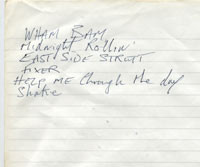 WHAM BAM
Midnight Rollin'
EAST SIDE STREET
FIXER
HELP ME through the day
Shake